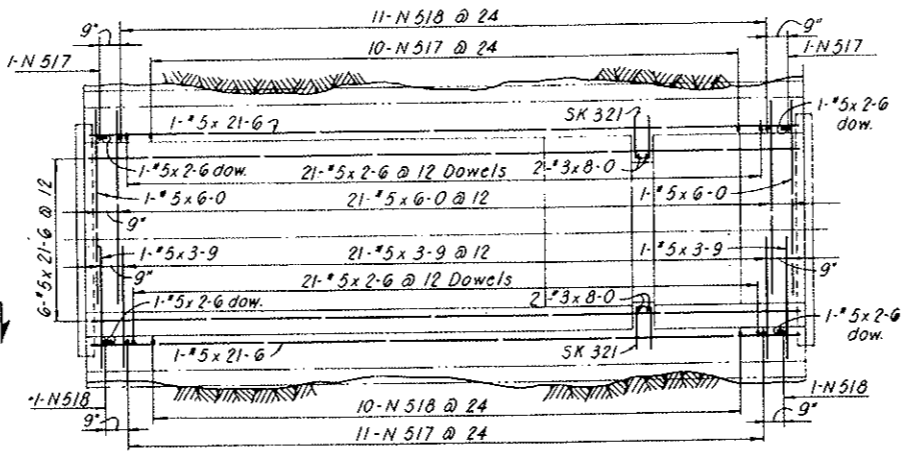 11-N 518 @ 24
9"
9"
10-N 517 @ 24
1-N 517
1-N 517
SK 321
1-#5x 2-6
dow.
1-#5x 21-6
1-#5x 2-6 dow.
21-#5x 2-6 @ 12 Dowels
2-#3x8-0
1-#5x6-0
21-#5x 6-0 @ 12
1-#5x6-0
9"
6-#5x 21-6 @ 12
1-#5x 3-9
21-#5x 3-9 @ 12
1-#5x 3-9
9"
9"
21-#5x 2-6 @ 12 Dowels
1-#5x 2-6 dow.
2-#3x8-0
1-#5x 2-6
dow.
1-#5x 21-6
SK 321
1-N 518
1-N 518
9"
10-N 518 @ 24
9"
11-N 517 @ 24